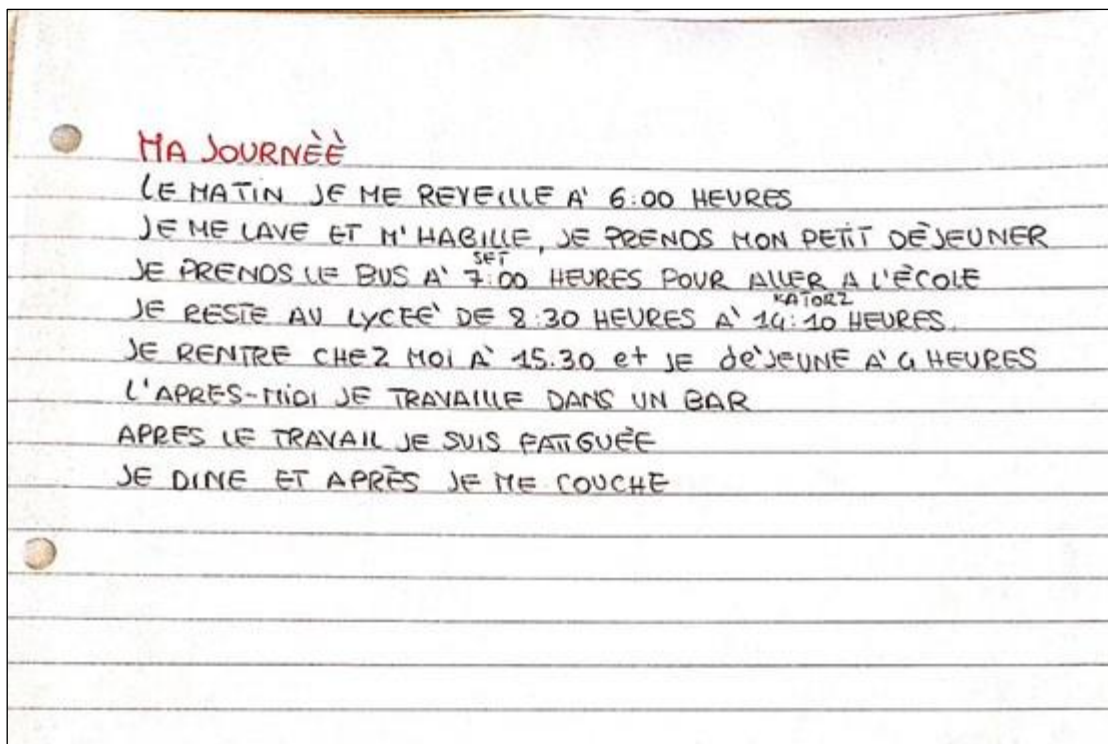 MA JOURNÈÈ
LE MATIN JE ME REVEILLE A' 6:00 HEURES
JE ME LAVE ET M'HABILLE, JE PRENDS MON PETIT DÈJEUNER
SET
JE PRENDS LE BUS A' 7:00 HEURES POUR ALLER A L'ÈCOLE
KATORZ
JE RESTE AU LYCEÈ DE 8:30 HEURES A' 14:10 HEURES.
JE RENTRE CHEZ MOI A' 15.30 et JE dè'JEUNE A' 4 HEURES
L'APRES-MIDI JE TRAVAILLE DANS UN BAR
APRES LE TRAVAIL JE SUIS FATIGUÈE
JE DINE ET APRÈS JE ME COUCHE